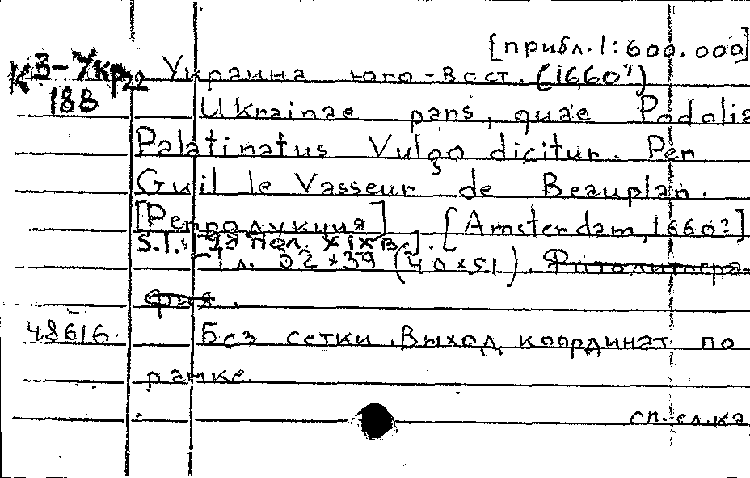 [прибл. 1:600.000]
К 3-Укр
Украина юго-вост. (1660?)
188
Ukrainae pars, quae Podolia
Palatinatus Vulgo dicitur. Per
Guil le Vasseur de Beauplan.
[Репродукция]. [Amsterdam, 1660?]
S.l., 2я пол. XIX в.
1 л. 32×39 (40×51). Фотолитогра
фия.
48616. Без сетки. Выход координат по
рамке.